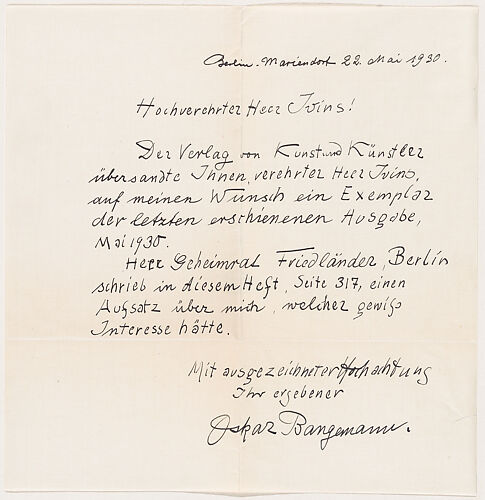 Berlin-Mariendorf 22. Mai 1930.
Hochverehrter Herr Ivins!
Der Verlag von Kunst und Künstler
übersandte Ihnen, verehrter Herr Ivins,
auf meinen Wunsch ein Exemplar
der letzten erschienenen Ausgabe,
Mai 1930.
Herr Geheimrat Friedländer, Berlin
schrieb in diesem Heft, Seite 317, einen
Aufsatz über mich, welcher gewiß
Interesse hätte.
Mit ausgezeichneter Hochachtung
Ihr ergebener
Oskar Bangemann.